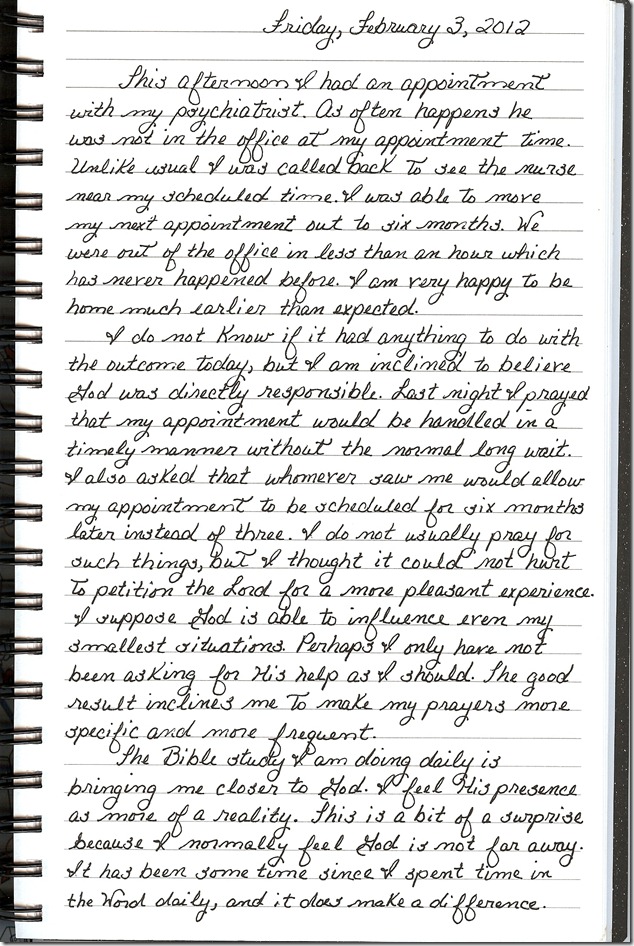 Friday, February 3, 2012
This afternoon I had an appointment
with my psychiatrist. As often happens he
was not in the office at my appointment time.
Unlike usual I was called back to see the nurse
near my scheduled time. I was able to move
my next appointment out to six months. We
were out of the office in less than an hour which
has never happened before. I am very happy to be
home much earlier than expected.
I do not know if it had anything to do with
the outcome today, but I am inclined to believe
God was directly responsible. Last night I prayed
that my appointment would be handled in a
timely manner without the normal long wait.
I also asked that whomever saw me would allow
my appointment to be scheduled for six months
later instead of three. I do not usually pray for
such things, but I thought it could not hurt
to petition the Lord for a more pleasant experience.
I suppose God is able to influence even my
smallest situations. Perhaps I only have not
been asking for His help as I should. The good
result inclines me to make my prayers more
specific and more frequent.
The Bible study I am doing daily is
bringing me closer to God. I feel His presence
as more of a reality. This is a bit of a surprise
because I normally feel God is not far away.
It has been some time since I spent time in
the Word daily, and it does make a difference.